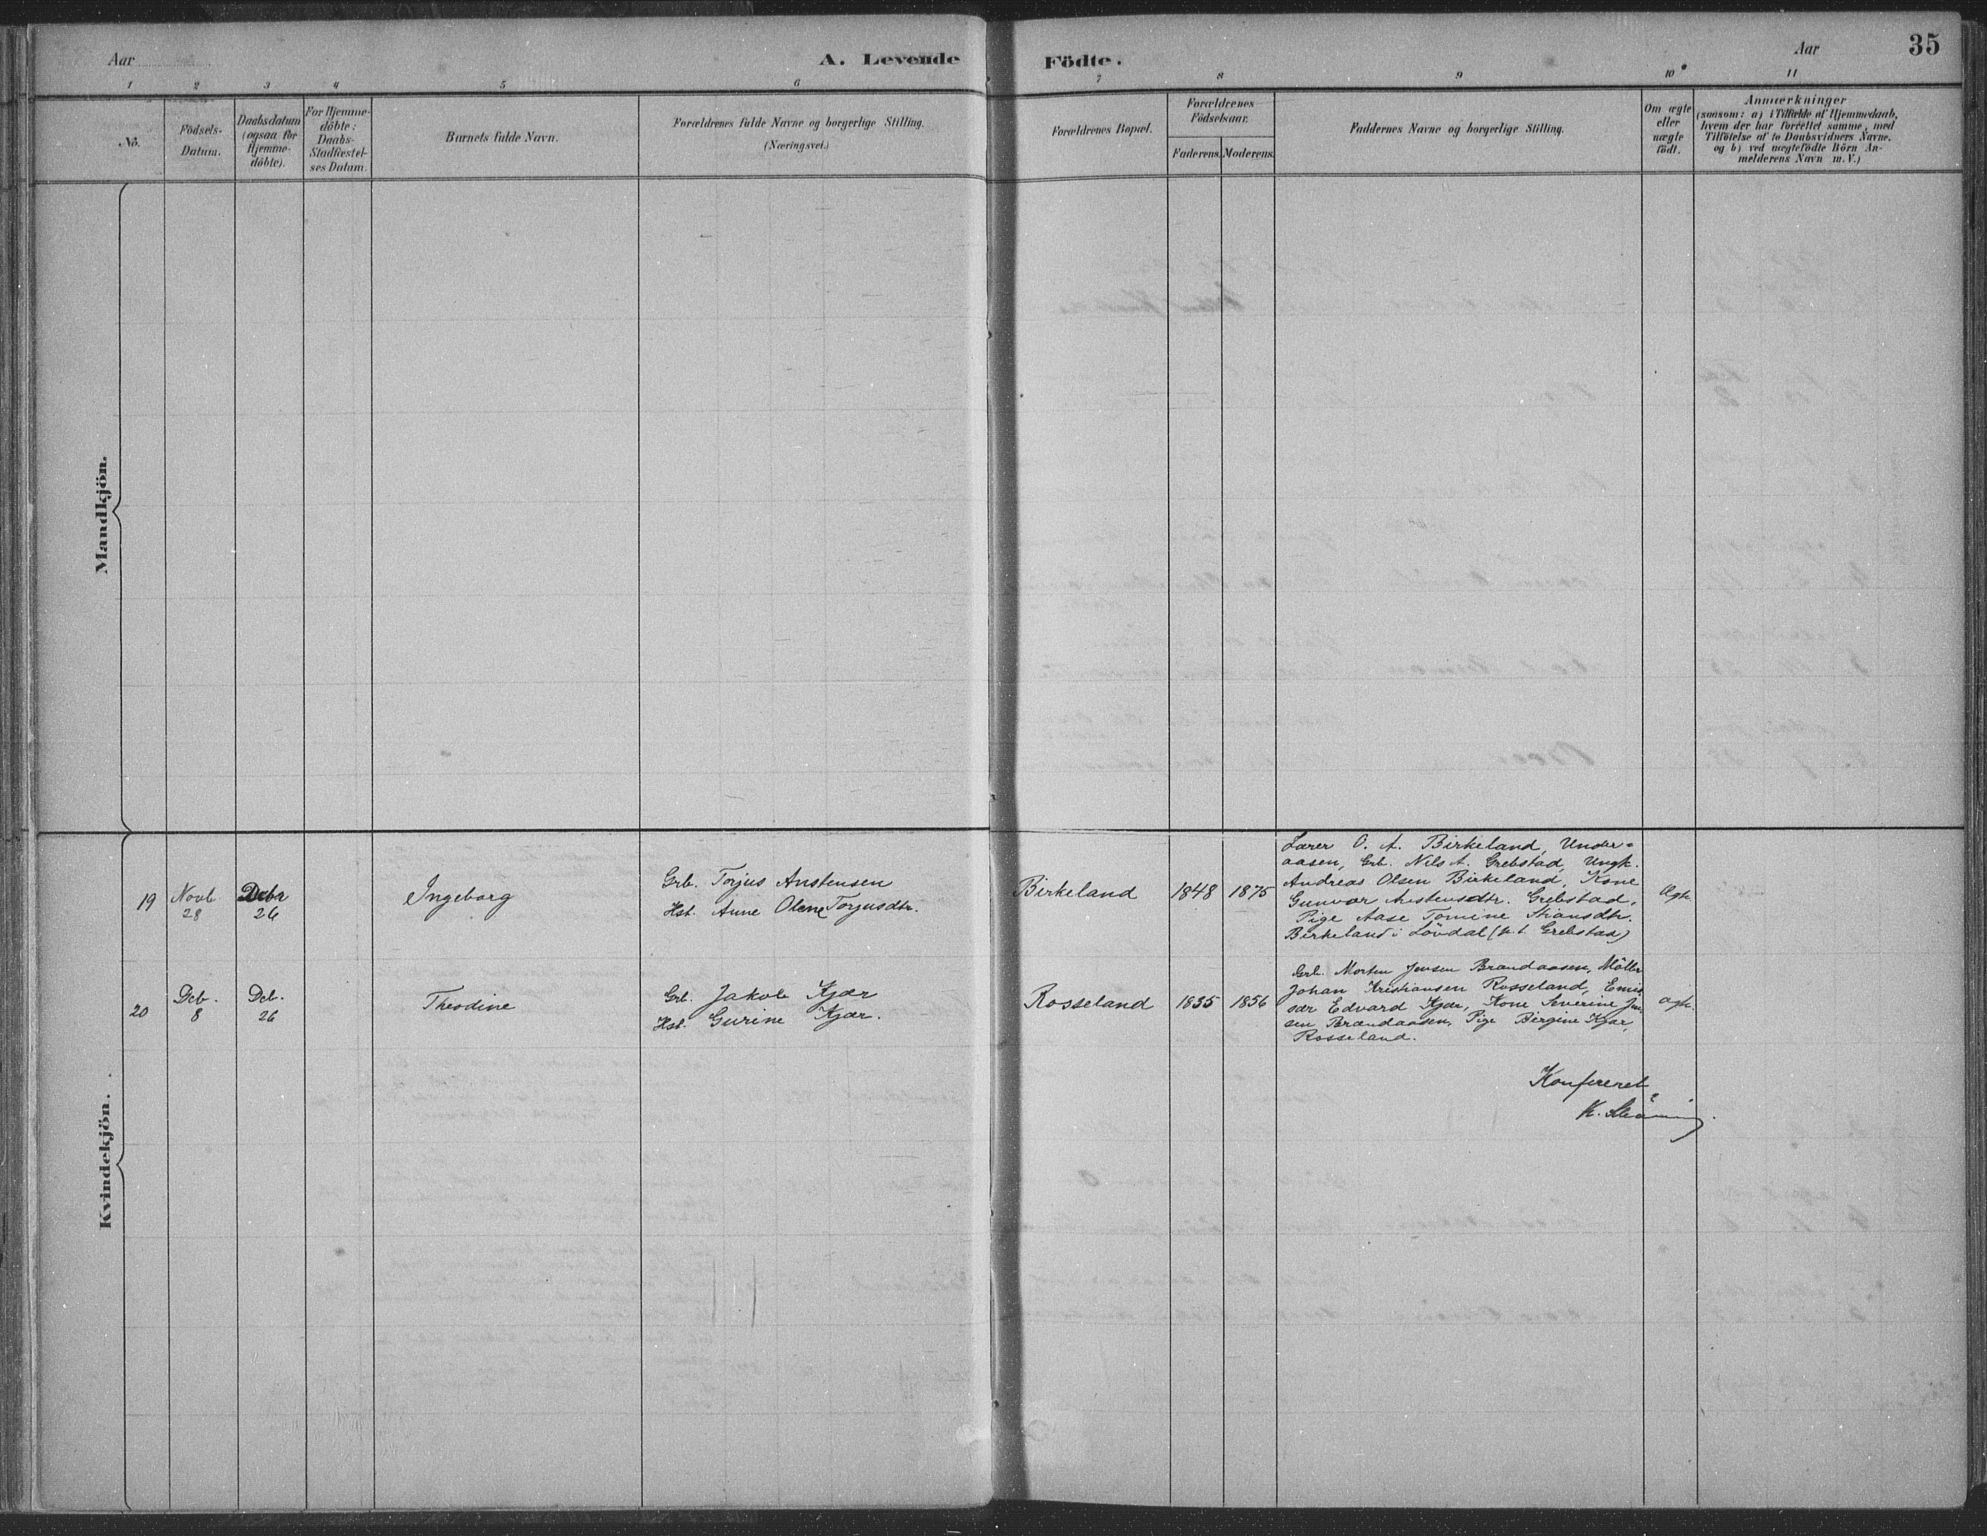 Aar
A. Levende
Födte.
Aar
35
1 2 3 4 5 6 7 8 9 10 11
No.
Födsels-
Datum.
Daabsdatum
(ogsaa for
Hjemme-
döbte).
For Hjemme-
döbte:
Daabs-
Stadfæstel-
ses Datum.
Barnets fulde Navn.
Forældrenes fulde Navne og borgerlige Stilling.
(Næringsvei.)
Forældrenes Bopæl.
Forældrenes
Födselsaar.
Faderens.
Moderens.
Faddernes Navne og borgerlige Stilling.
Om ægte
eller
uægte
födt.
Anmærkninger
(saasom: a) i Tilfælde af Hjemmedaab,
hvem der har forrettet samme, med
Tilföielse af to Daabsvidners Navne,
og b) ved uægtefödte Börn An-
melderens Navn m. V.)
Mandkjön.
Kvindekjön.
19
Novb
28
Debr
26
Ingeborg
Grb. Torjus Anstensen
Hst. Anne Olene Torjusdtr.
Birkeland
1848
1875
Lærer O. A. Birkeland, Under-
aasen, Grb. Nils A. Grebstad, Ungk.
Andreas Olsen Birkeland, Kone
Gunvor Anstensdtr. Grebstad,
Pige Aase Tomine
Birkeland i Lövdal (p. t. Grebstad)
Ægte
20
Deb.
8
Deb.
26
Theodine
Grb. Jakob Kjær
Hst. Gurine Kjær.
Rosseland
1835
1856
Grb. Morten Jensen Brandaasen, Möller
Johan Kristiansen Rosseland, Emis-
sær Edvard Kjær, Kone Severine Jen-
sen Brændaasen, Pige Birgine Kjær,
Rosseland.
ægte.
Konfereret
K.